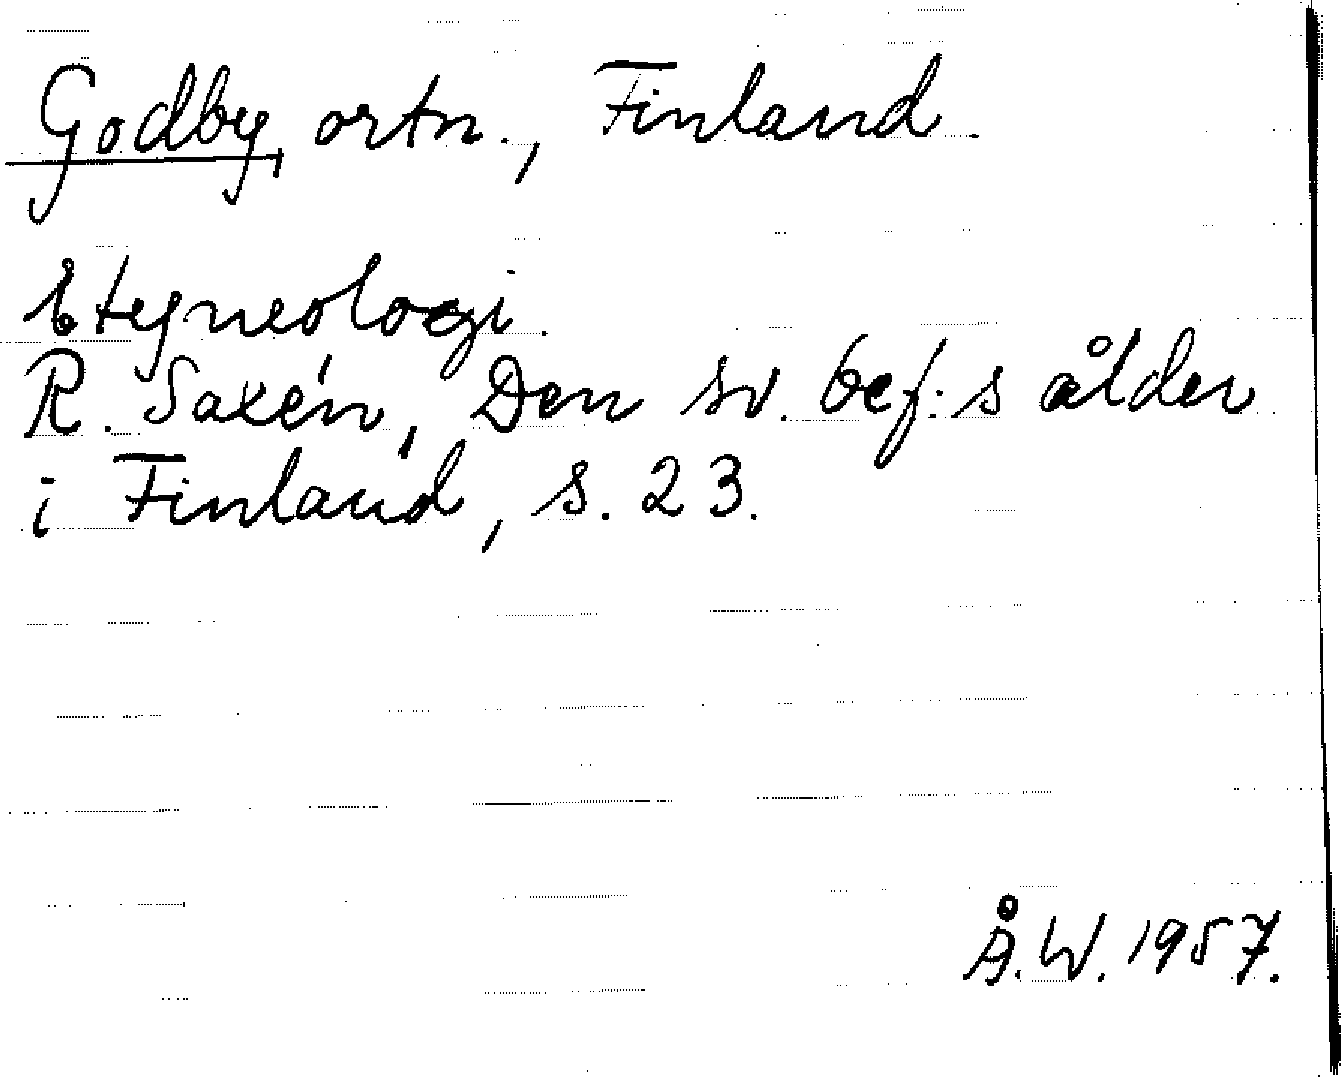 Godby, ortn., Finland.
Etymologi.
R. Saxén, Den sv. bef:s ålder
i Finland, s. 23.
Å.W. 1957.